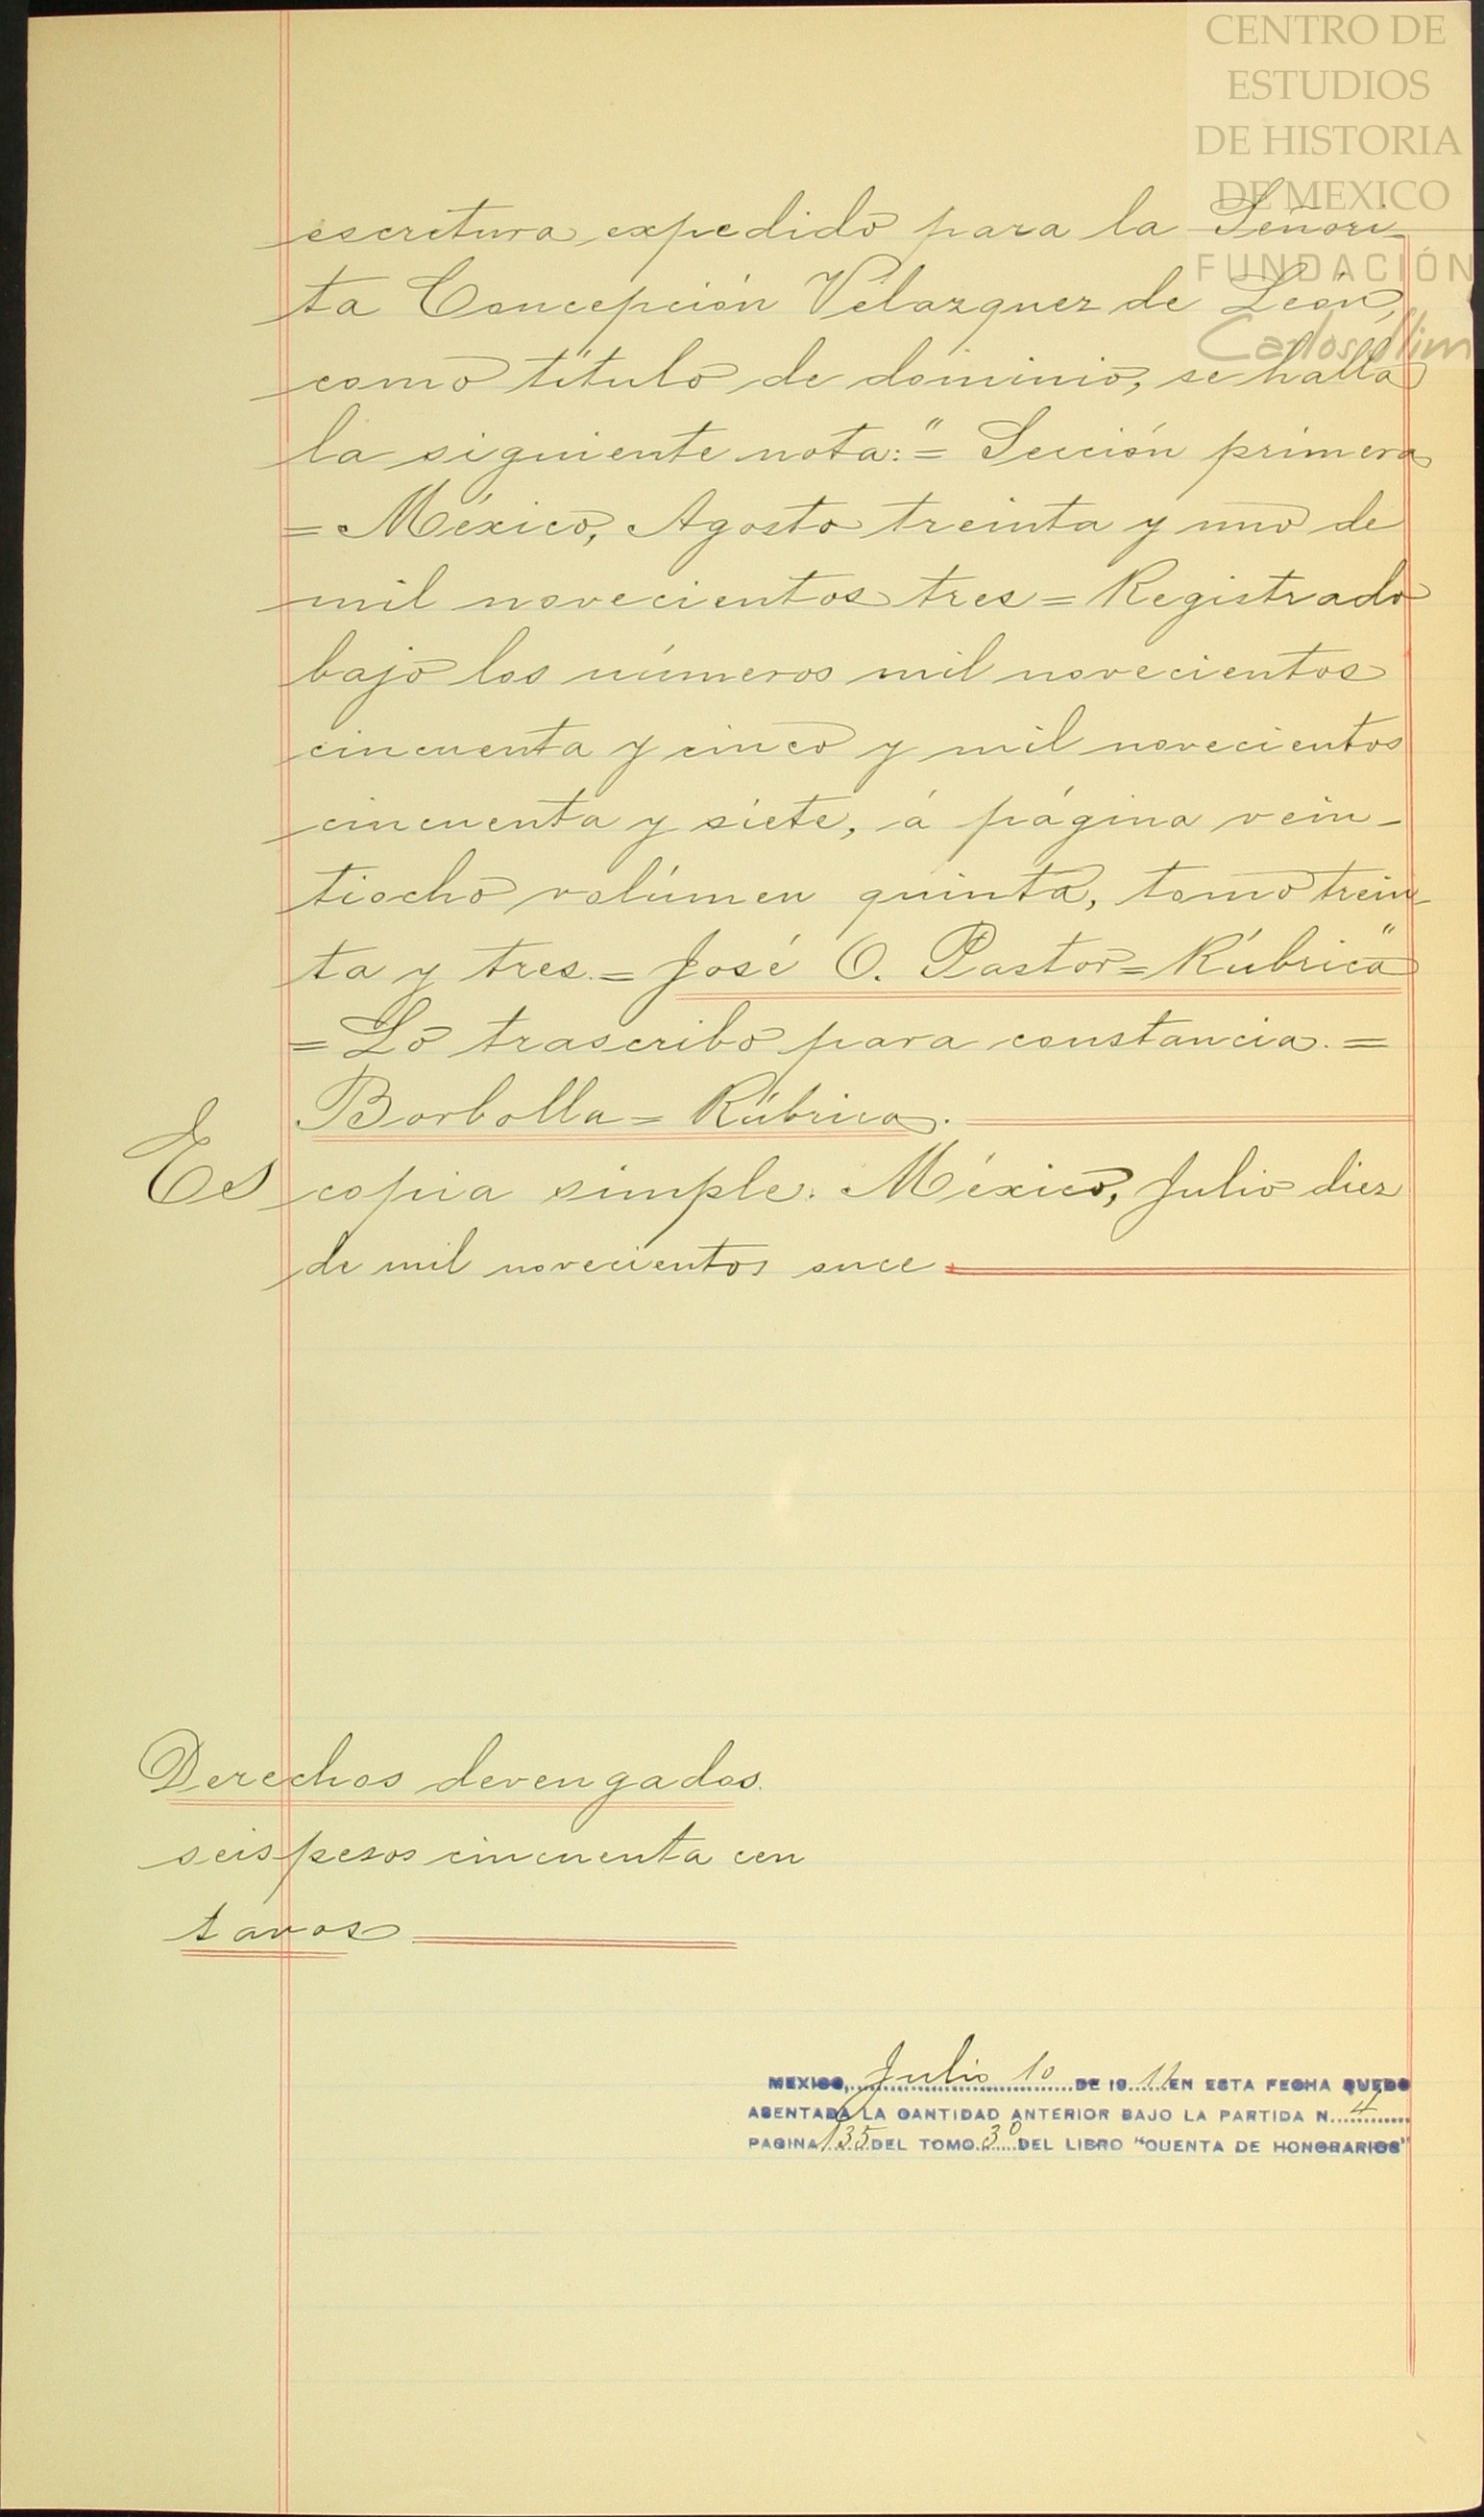 CENTRO DE
ESTUDIOS
DE HISTORIA
DE MEXICO
FUNDACIÓN
Carlos Slim
escritura expedido para la Señori-
ta Concepción Velazquez de León,
como título de dominio, se halla
la siguiente nota:"= Sección primera
= México, Agosto treinta y uno de
mil novecientos tres = Registrado
bajo los números mil novecientos
cincuenta y cinco y mil novecientos
cincuenta y siete, á página vein-
tiocho volúmen quinta, tomo trein-
ta y tres.= José O. Pastor = Rúbrica"
= Lo trascribo para constancia. =
Borbolla = Rúbrica.
Es copia simple. México, Julio diez
de mil novecientos once.
Derechos devengados.
seis pesos cincuenta cen
tavos
MEXICO, Julio 10 DE 19 11 EN ESTA FECHA QUEDO
ASENTADA LA CANTIDAD ANTERIOR BAJO LA PARTIDA N. 4
PAGINA 135 DEL TOMO 3º DEL LIBRO "CUENTA DE HONORARIOS"